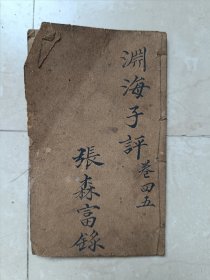 淵海子評
卷四五
張森富錄